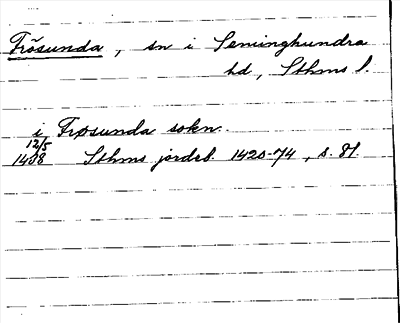 Frösunda, sn i Seminghundra
hd, Sthms l.
i Frøsunda sokn.
12/5
1438 Sthms jordeb. 1420-74, s. 81.